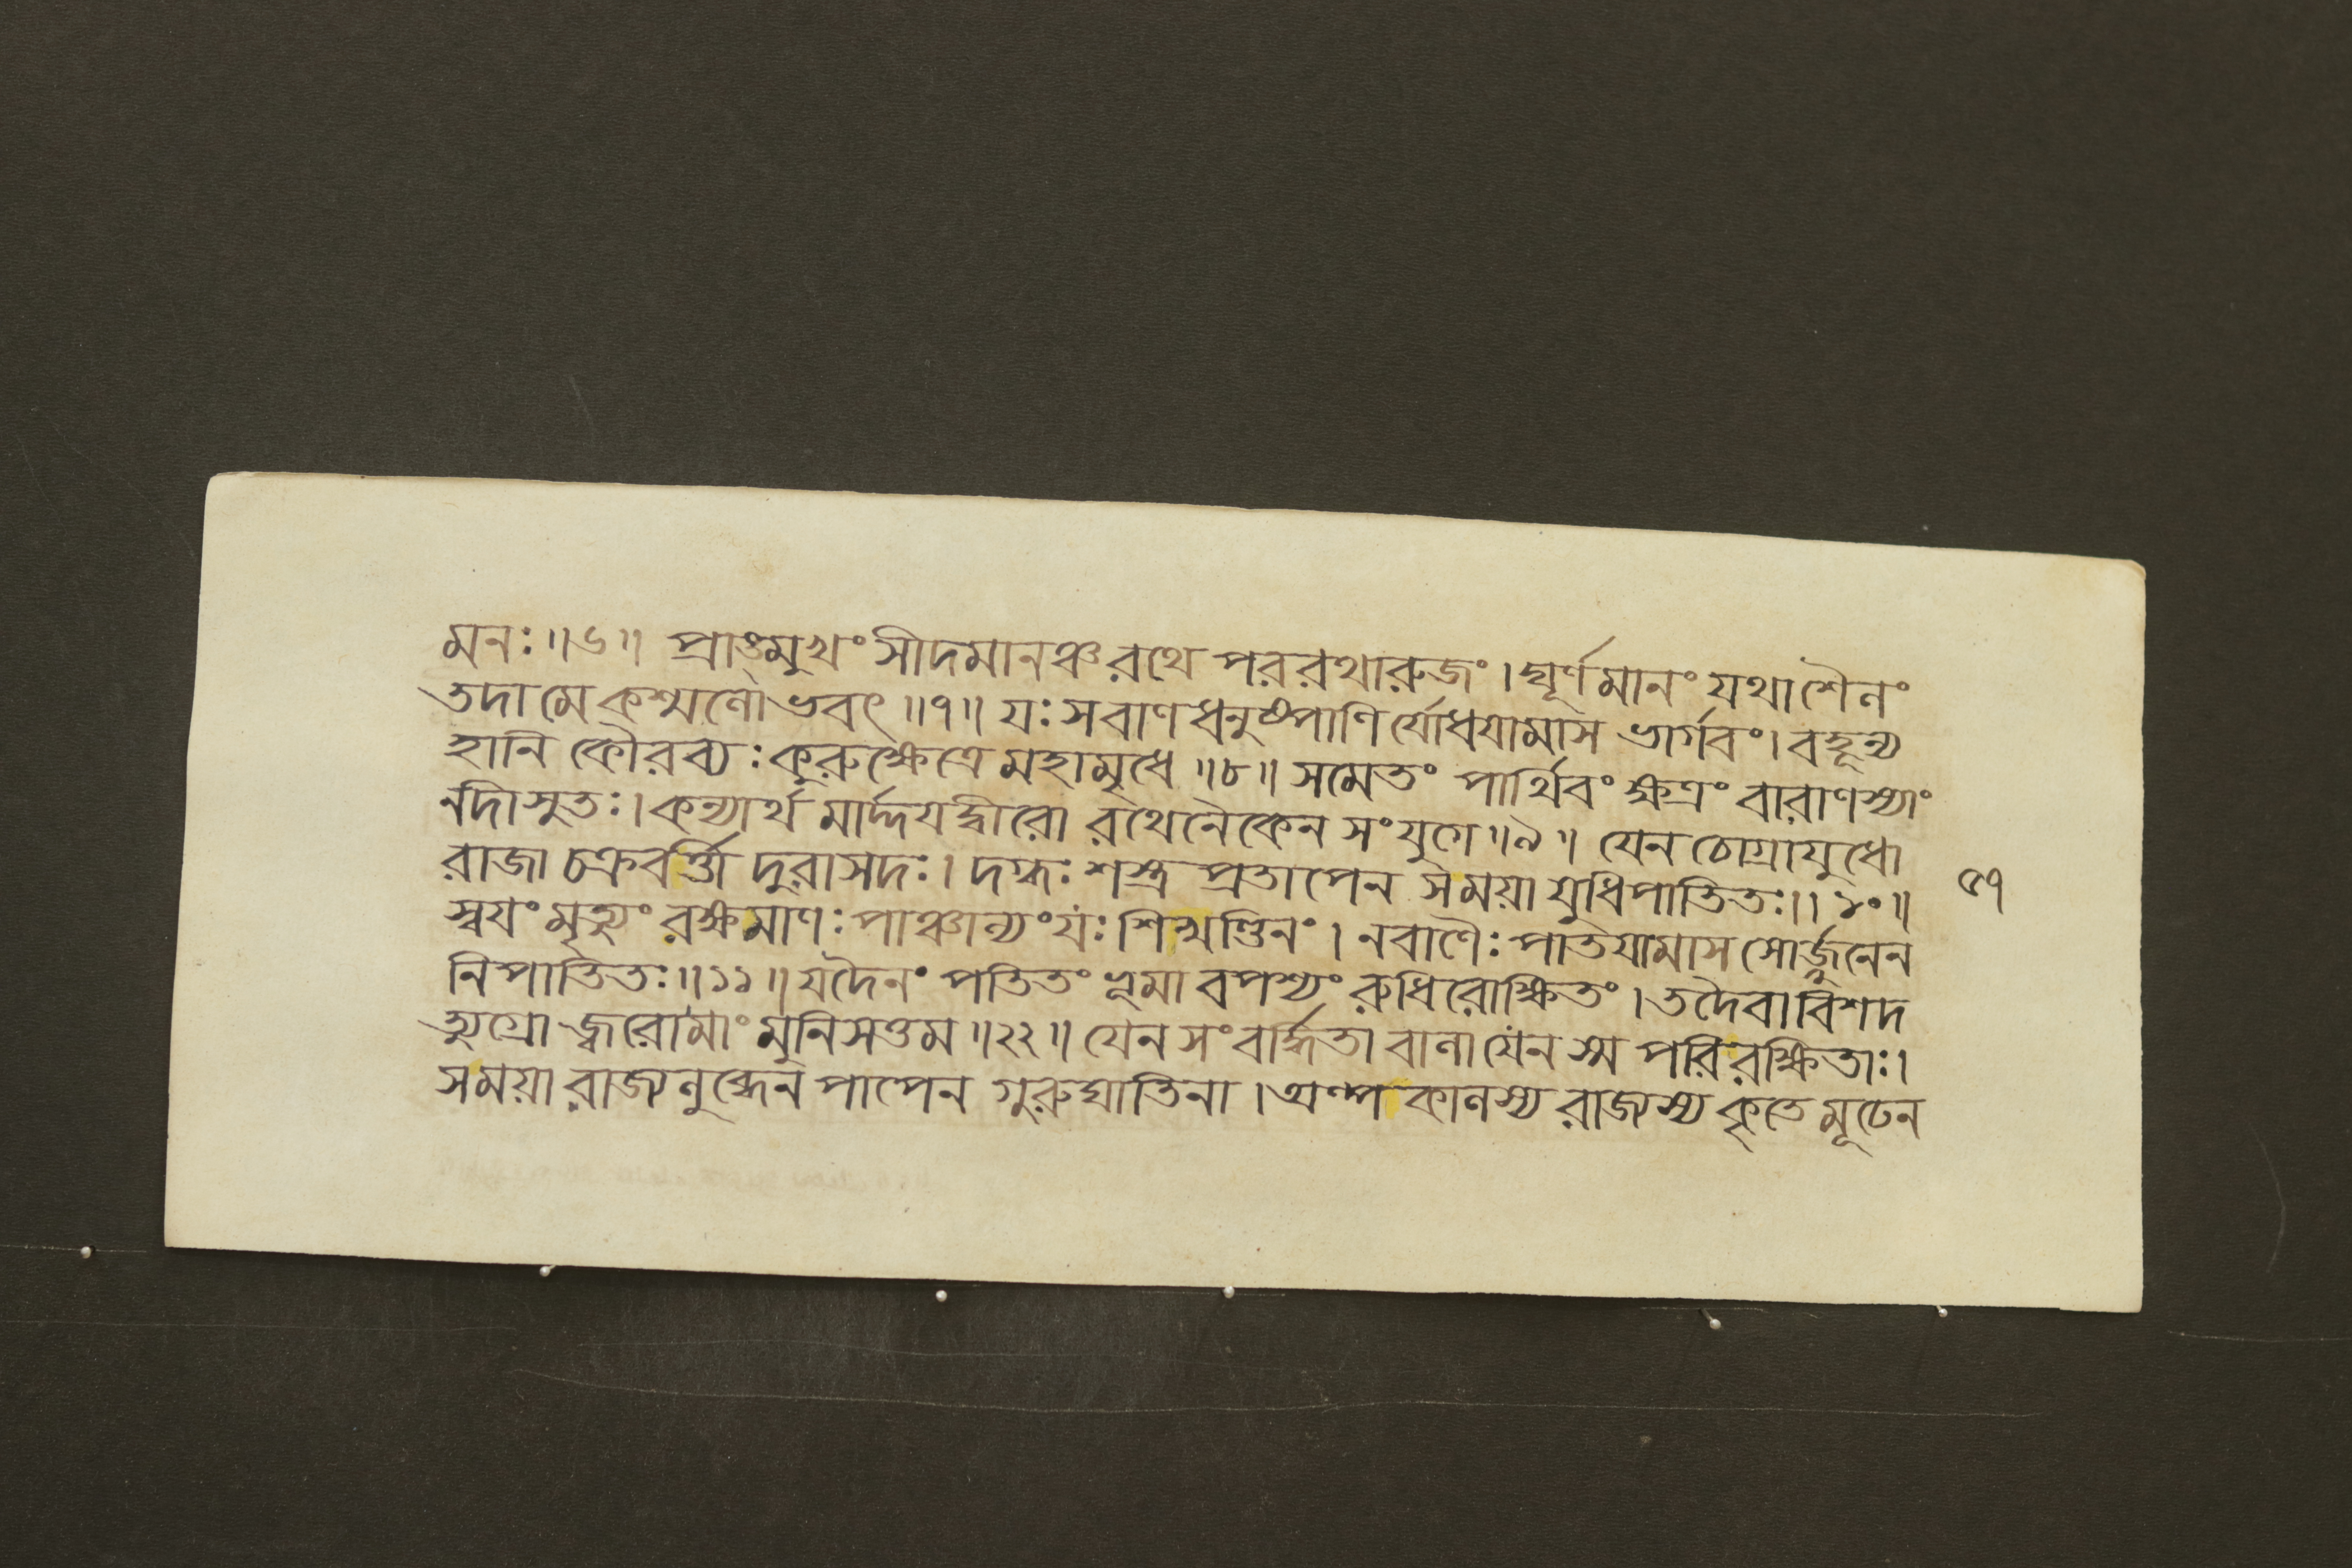 মনঃ॥৬॥ প্রাঙ্মুখং সীদমানঞ্চ রথে পররথারুজং। ঘূর্ণমানং যথাশৈলং
তদা মে কশ্মলোভবৎ॥৭॥ যঃ সবাণ ধনুষ্পাণি র্যোধযামাস ভার্গবং। বহূন্য
হানি কৌরব্যঃ কুরুক্ষেত্রে মহামৃধে॥৮॥ সমেতং পার্থিবং ক্ষত্রং বারাণস্যাং
নদীসুতঃ। কন্যার্থ মার্দ্দযদ্বীরো রথেনৈকেন সংযুগে॥৯॥ যেন চোগ্রাযুধো
রাজা চক্রবর্ত্তী দুরাসদঃ। দগ্ধঃ শস্ত্র প্রতাপেন সময়া যুধিপাতিতঃ॥১০॥
স্বযং মৃত্যুং রক্ষমাণঃ পাঞ্চাল্যং যঃ শিখণ্ডিনং। নবাণৈঃ পাতযামাস সোর্জুনেন
নিপাতিতঃ॥১১॥ যদৈনং পতিতং ভূমা বপশ্যং রুধিরোক্ষিতং। তদৈবাবিশদ
ত্যুগ্রো জ্বরোমাং মুনিসত্তম॥১২॥ যেন সংবর্দ্ধিতা বালা যেন স্ম পরিরক্ষিতাঃ।
সময়া রাজ্যলুব্ধেন পাপেন গুরুঘাতিনা। অল্পকালস্য রাজ্যস্য কৃতে মূঢেন
৫৭